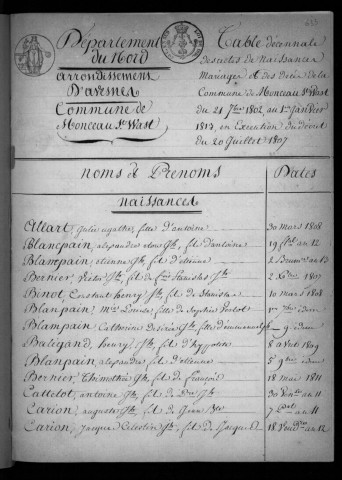 Département
du Nord
arrondissement
D'avesnes
Commune de
Monceau St Wast
Table décennale
des actes de Naissances
Mariages et des Décès de la
Commune de Monceau St Wast
du 21 7bre 1802 au 1er Janvier
1813, en Execution du décret
du 20 Juillet 1807
noms & Prenoms Dates
naissances
Allart, Julie agathe, fille d'antoine 30 mars 1808
Blanpain, alexandre Gte, fil d'antoine 19 an 12
Blampain, étienne Gte, fil d'étienne 2 Brum an 13
Bernier, Gte, fil de Stanislas Gte 2 Xbre 1807
Binot, Constant henry Gte, fil de Stanislas 10 mars 1808
Blanpain, Louise, fille de
Blampain Catherine Désirée Gte, fille idem
Baligand, henry Gte, fil d'hyppolite 8 avril 1809
Blanpain, alexandre fil d'étienne 5 9bre idem
Bernier, Thimothée Gte, fil de François 18 mai 1811
Cattelot, antoine Gte, fil de Gte 30 an 11
Carion, auguste Gte, fil de Jean Bte 7 an 11
Carion, Jacque Celestin Gte, fil de Jacque 18 Vend an 12